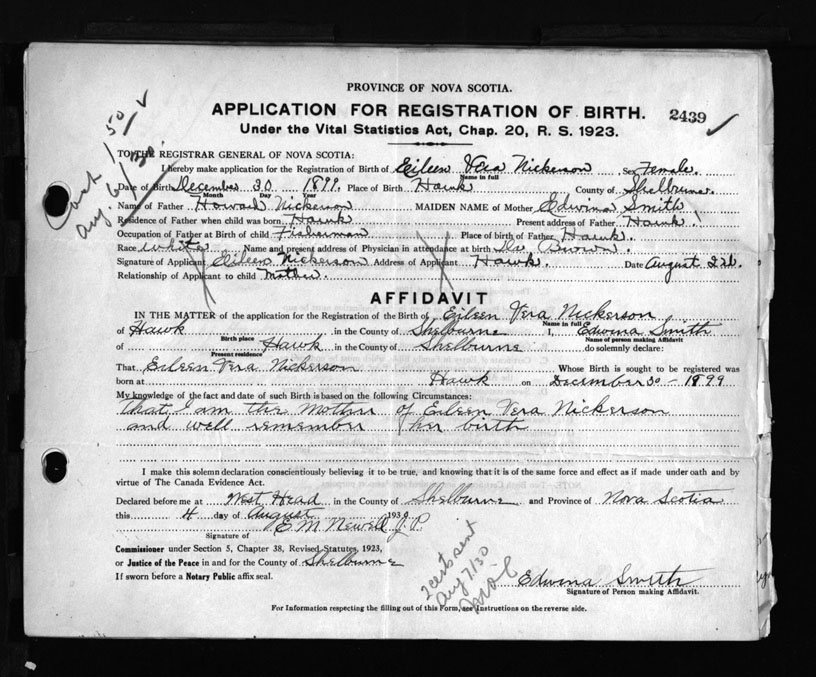 PROVINCE OF NOVA SCOTIA.
APPLICATION FOR REGISTRATION OF BIRTH. 2439
Under the Vital Statistics Act, Chap. 20, R. S. 1923.
TO THE REGISTRAR GENERAL OF NOVA SCOTIA:
I hereby make application for the Registration of Birth of Eileen Vera Nickerson, Sex Female.
Name in full
Date of Birth December 30 1899. Place of Birth Hawk County of Shelburne.
Month Day Year
Name of Father Howard Nickerson MAIDEN NAME of Mother Edwina Smith
Residence of Father when child was born Hawk Present address of Father Hawk.
Occupation of Father at Birth of child Fisherman Place of birth of Father Hawk.
Race White Name and present address of Physician in attendance at birth Dr. Brown.
Signature of Applicant Eileen Nickerson Address of Applicant Hawk. Date August 2nd.
Relationship of Applicant to child Mother.
Cost 1.50
Aug. 6/30
AFFIDAVIT
IN THE MATTER of the application for the Registration of the Birth of Eileen Vera Nickerson
Name in full
of Hawk in the County of Shelburne I, Edwina Smith
Birth place Name of person making Affidavit
of Hawk in the County of Shelburne do solemnly declare:
Present residence
That Eileen Vera Nickerson Whose Birth is sought to be registered was
born at Hawk on December 30 - 1899
My knowledge of the fact and date of such Birth is based on the following Circumstances:
That I am the Mother of Eileen Vera Nickerson
and well remember her birth
I make this solemn declaration conscientiously believing it to be true, and knowing that it is of the same force and effect as if made under oath and by
virtue of The Canada Evidence Act.
Declared before me at West Head in the County of Shelburne and Province of Nova Scotia
this 4 day of August 1930
E. M. Newell J.P.
Signature of
Commissioner under Section 5, Chapter 38, Revised Statutes, 1923,
or Justice of the Peace in and for the County of Shelburne
If sworn before a Notary Public affix seal.
2 certs sent
Aug 7/30
Edwina Smith
Signature of Person making Affidavit.
For Information respecting the filling out of this Form, see Instructions on the reverse side.